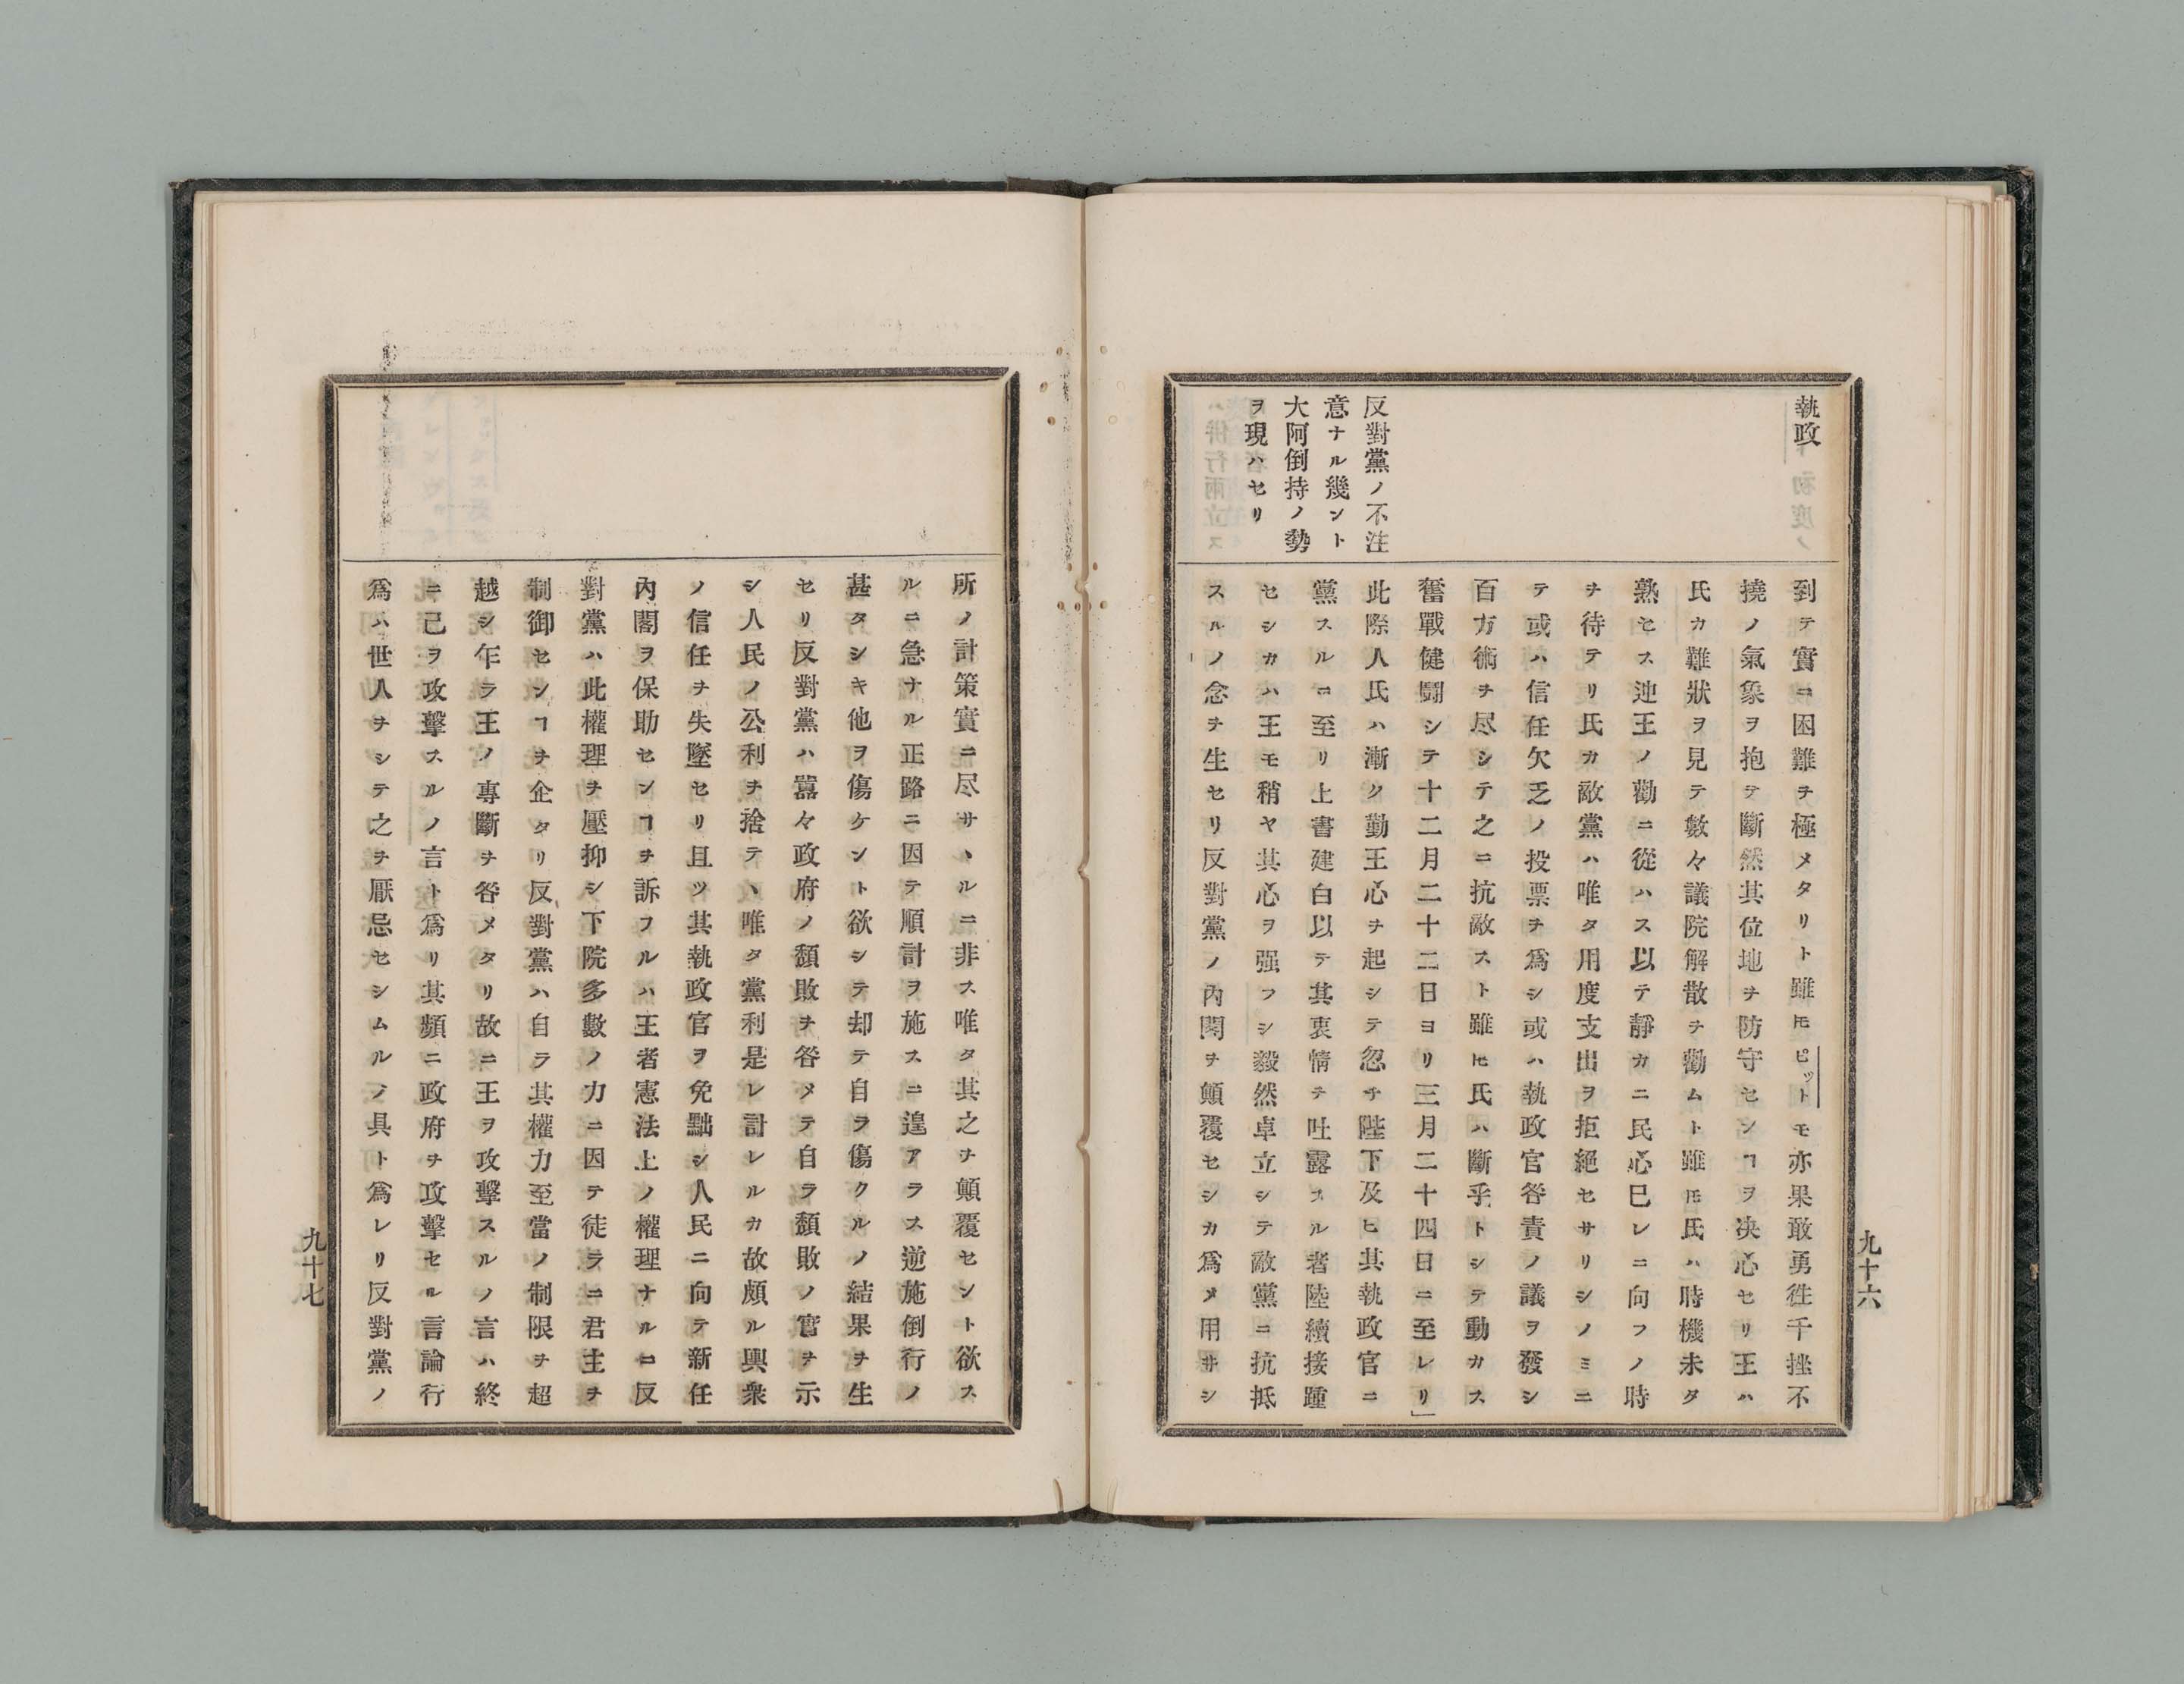 執政
反對黨ノ不注
意ナル幾ント
大阿倒持ノ勢
ヲ現ハセリ
到テ實ニ困難ヲ極メタリト雖𪜈ピットモ亦果敢勇徃千挫不
撓ノ氣象ヲ抱テ斷然其位地ヲ防守センヿヲ决心セリ王ハ
氏カ難狀ヲ見テ數々議院解散ヲ勸ムト雖𪜈氏ハ時機未タ
熟セス迚王ノ勸ニ從ハス以テ靜カニ民心巳レニ向フノ時
ヲ待テリ氏カ敵黨ハ唯タ用度支出ヲ拒絕セサリシノミニ
テ或ハ信任欠乏ノ投票ヲ爲シ或ハ執政官咎責ノ議ヲ發シ
百方術ヲ尽シテ之ニ抗敵スト雖𪜈氏ハ斷乎トシテ動カス
奮戰健鬪シテ十二月二十二日ヨリ三月二十四日ニ至レリ」
此際人氏ハ漸ク勤王心ヲ起シテ忽チ陛下及ヒ其執政官ニ
黨スルニ至リ上書建白以テ其衷情ヲ吐露スル者陸續接踵
セシカハ王モ稍ヤ其心ヲ强フシ毅然卓立シテ敵黨ニ抗抵
スルノ念ヲ生セリ反對黨ノ內閣ヲ顚覆セシカ爲メ用井シ
九十六
所ノ計策實ニ尽サヽルニ非ス唯タ其之ヲ顚覆セント欲ス
ルニ急ナル正路ニ因テ順計ヲ施スニ遑アラス逆施倒行ノ
甚タシキ他ヲ傷ケント欲シテ却テ自ラ傷クルノ結果ヲ生
セリ反對黨ハ囂々政府ノ頽敗ヲ咎メテ自ラ頽敗ノ官ヲ示
シ人民ノ公利ヲ捨テヽ唯タ黨利是レ計レルカ故頗ル輿衆
ノ信任ヲ失墜セリ且ツ其執政官ヲ免黜シ人民ニ向テ新任
內閣ヲ保助センヿヲ訴フルハ王者憲法上ノ權理ナルニ反
對黨ハ此權理ヲ壓抑シ下院多數ノ力ニ因テ徒ラニ君主ヲ
制御センヿヲ企タリ反對黨ハ自ラ其權力至當ノ制限ヲ超
越シ乍ラ王ノ專斷ヲ咎メタリ故ニ王ヲ攻擊スルノ言ハ終
ニ己ヲ攻擊スルノ言ト爲リ其頻ニ政府ヲ攻擊セル言論行
爲ハ世人ヲシテ之ヲ厭忌セシムルノ具ト爲レリ反對黨ノ
九十七